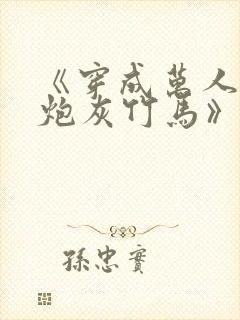 《穿成萬人
炮灰竹馬》
孫忠實